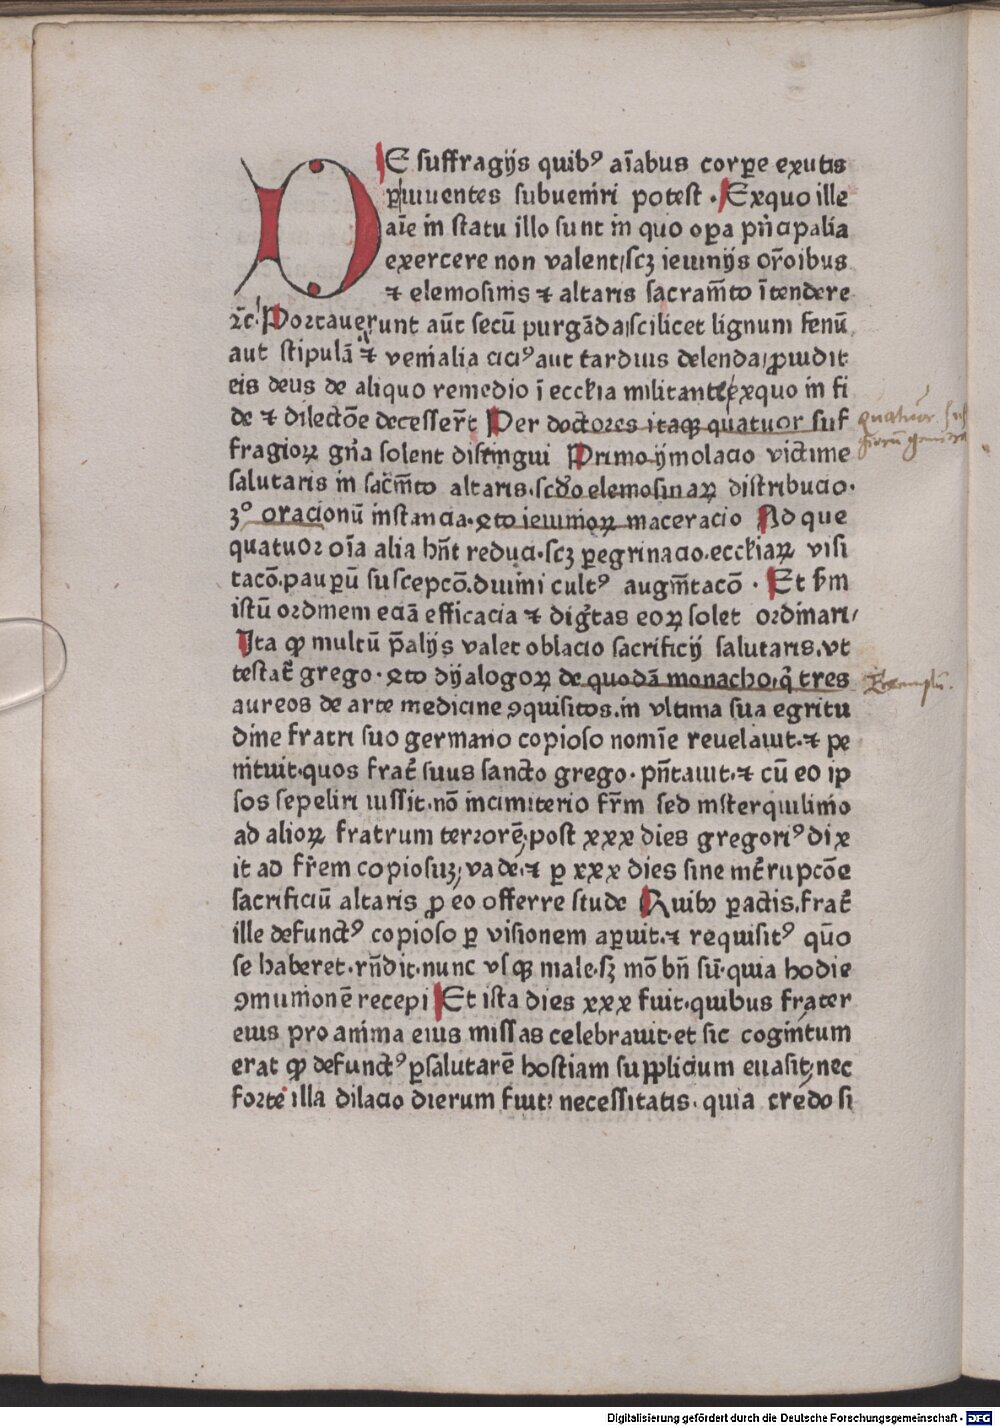 DE suffragijs quibꝰ aīabus corꝑe exutis
ꝑ uiuentes subueniri potest · Exquo ille
aīe in statu illo sunt in quo oꝑa pn̄cipalia
exercere non valent/scꝫ ieiunijs or̄oibus
⁊ elemosinis ⁊ altaris sacram̄to ītendere
⁊c̄· Portauerunt aūt secū purgāda/scilicet lignum fenū
aut stipulā ⁊ venialia cicꝰ aut tardius delenda/ꝓuidit
eis deus de aliquo remedio ī eccłia militante/exquo in fi
de ⁊ dilectōe decesser̄t Per doctores itaqꝫ quatuor suf
fragioꝝ gn̄a solent distingui Primo ymolacio victime
salutaris in sacr̄m̄to altaris·scd̄o elemosinaꝝ distribucio·
3° oracionū instancia·4to ieiunioꝝ maceracio Ad que
quatuor oīa alia hn̄t reduci·scꝫ ꝑegrinacio·eccłiaꝝ visi
tacō·pauꝑū suscepcō·diuini cultꝰ augm̄tacō · Et sm̄
istū ordinem eciā efficacia ⁊ diḡtas eoꝝ solet ordinari/
Ita ꝙ multū p̄alijs valet oblacio sacrificij salutaris·vt
testat̄ grego·4to dyalogoꝝ de quodā monacho·q̄ tres
aureos de arte medicine ꝯquisitos·in vltima sua egritu
dine fratri suo germano copioso nomīe reuelauit·⁊ pe
nituit·quos frat̄ suus sancto grego·pn̄tauit·⁊ cū eo ip
sos sepeliri iussit·nō incimiterio fr̄m sed insterquilinio
ad alioꝝ fratrum terrorē·post xxx dies gregoriꝰ dix
it ad fr̄em copiosuꝫ/vade·⁊ ꝑ xxx dies sine int̄rupcōe
sacrificiū altaris ꝓ eo offerre stude Quibꝫ ꝑactis·frat̄
ille defunctꝰ copioso ꝑ visionem aꝑuit·⁊ requisitꝰ quō
se haberet·rn̄dit·nunc vsqꝫ male·sꝫ mō bn̄ sū·quia hodie
ꝯmunionē recepi Et ista dies xxx fuit·quibus frater
eius pro anima eius missas celebrauit·et sic cognitum
erat ꝙ defunctꝰ ꝑsalutarē hostiam supplicium euasit/nec
forte illa dilacio dierum fuit necessitatis· quia credo si
quatuor suf
fragiorū genera
Exemplū·
Digitalisierung gefördert durch die Deutsche Forschungsgemeinschaft - DFG